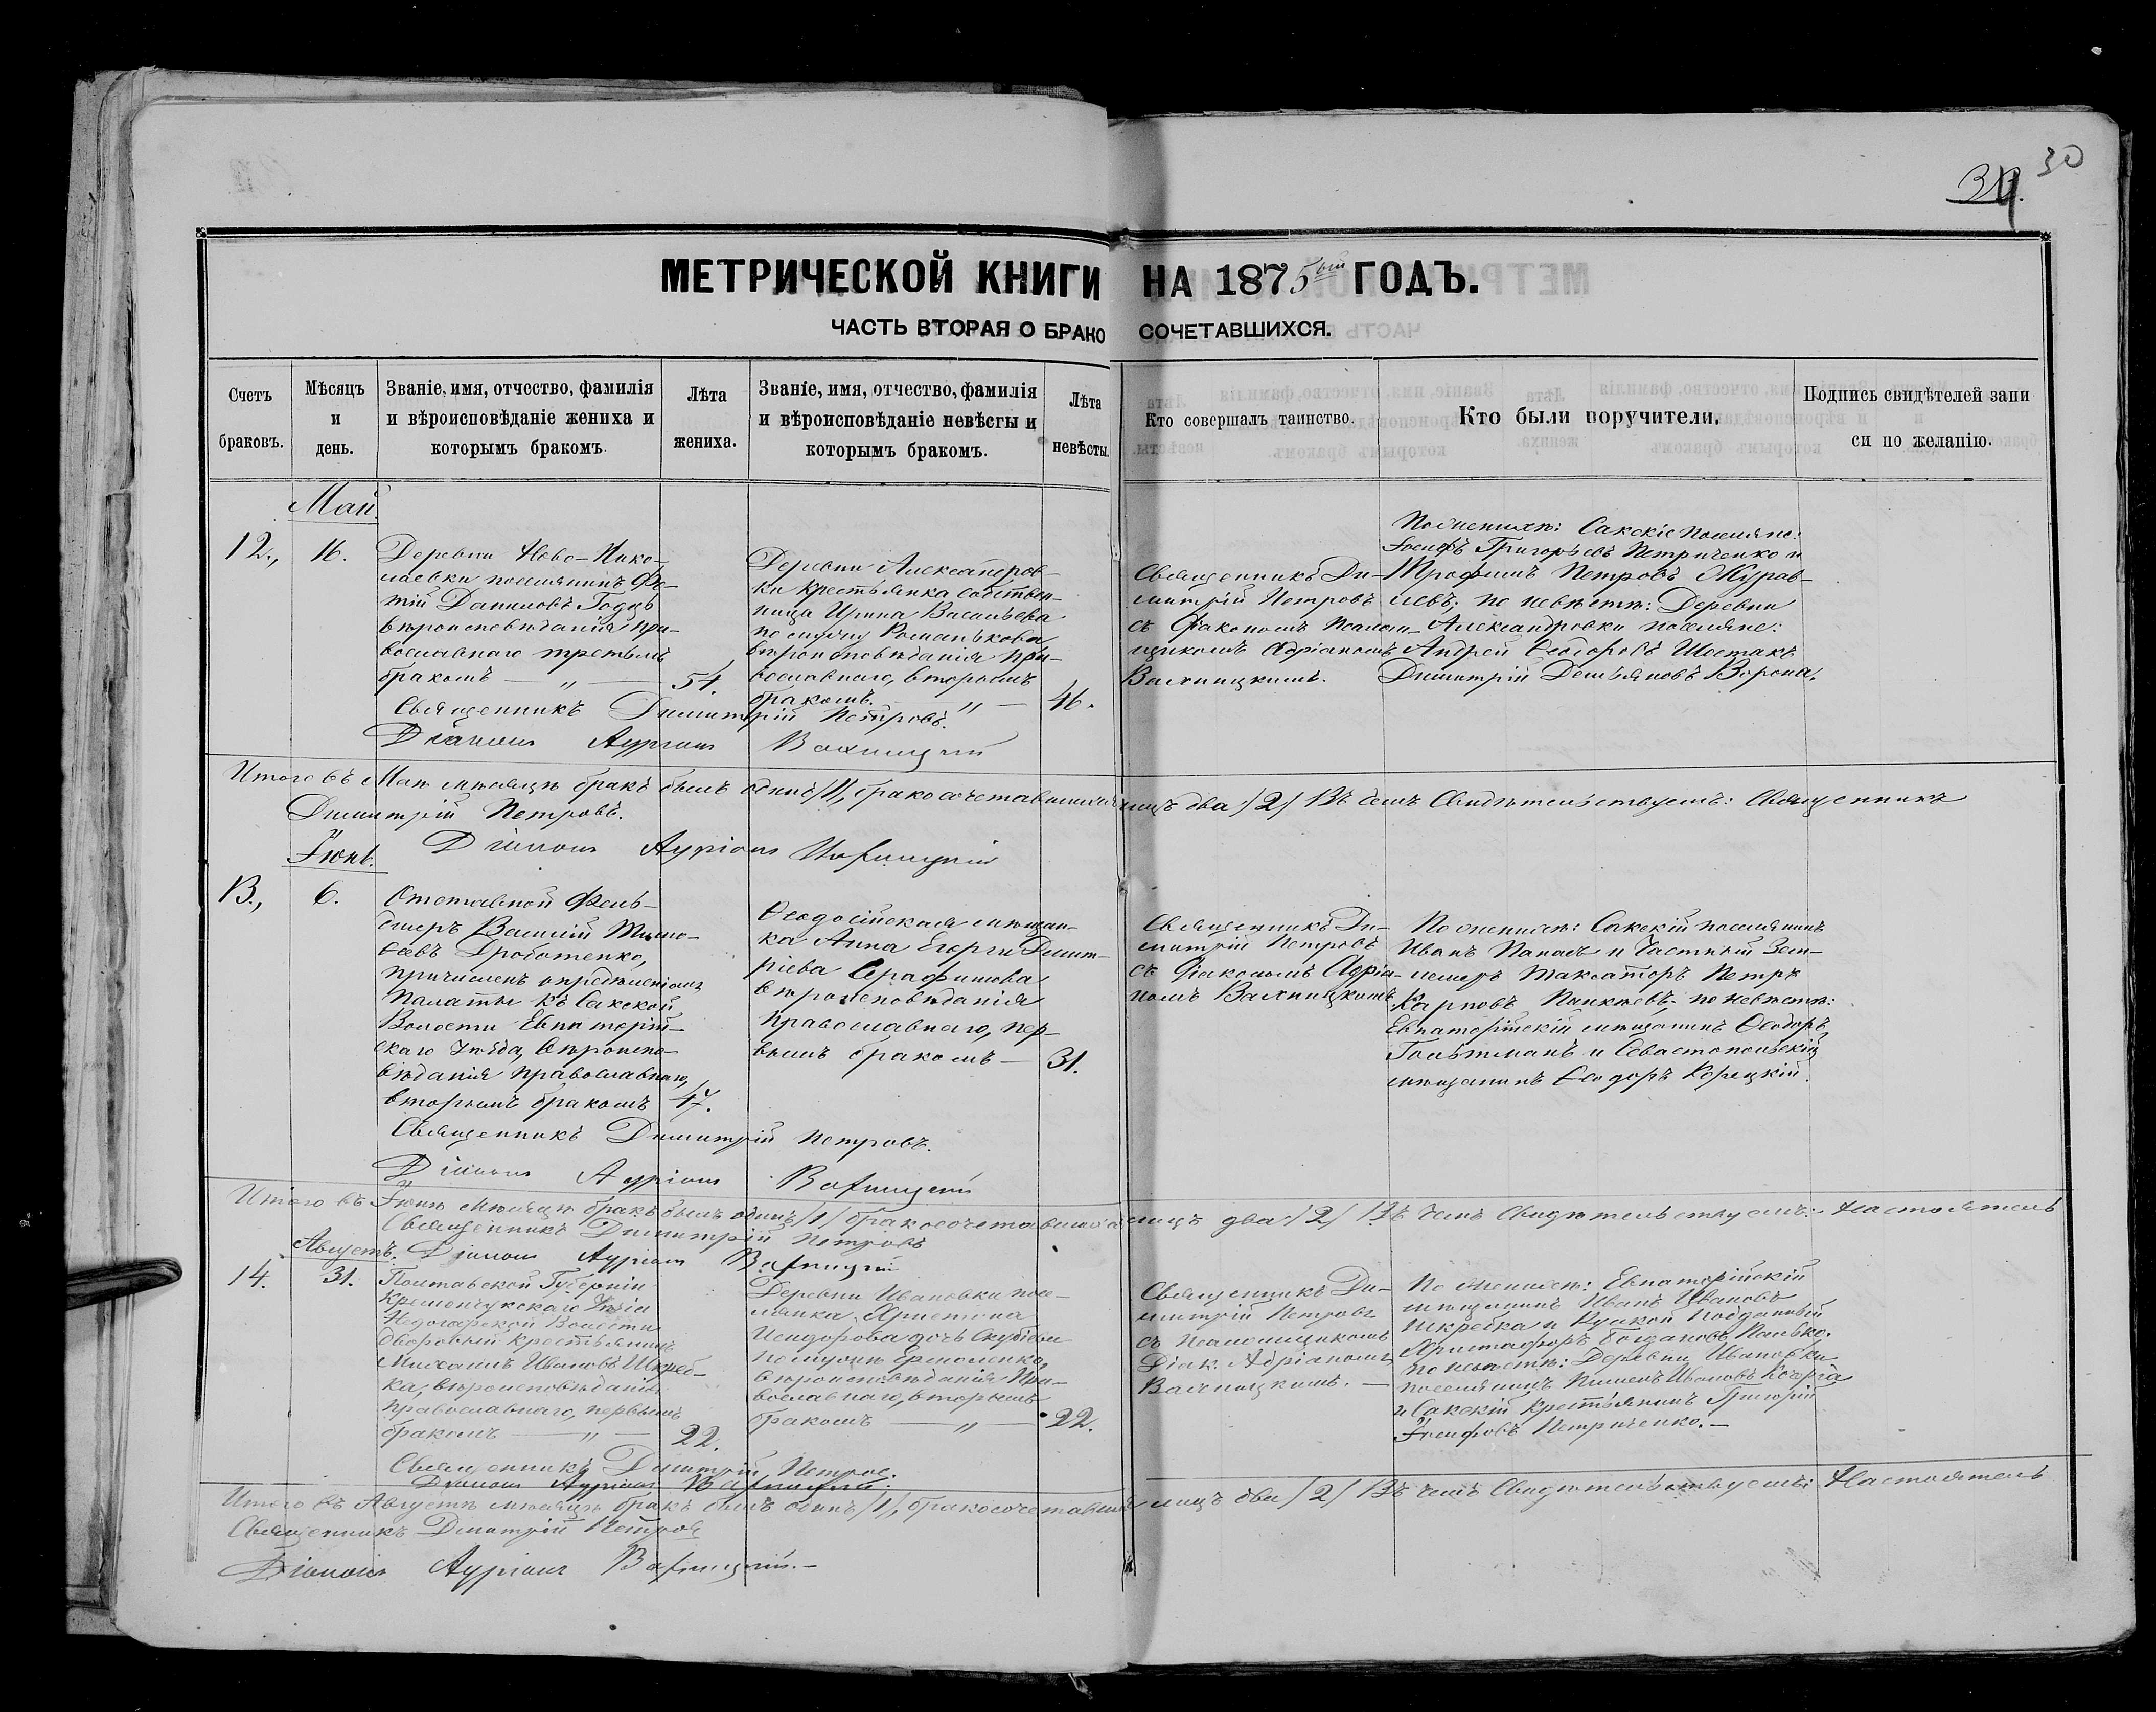 30
МЕТРИЧЕСКОЙ КНИГИ НА 1875ый ГОДЪ.
ЧАСТЬ ВТОРАЯ О БРАКОСОЧЕТАВШИХСЯ.
Счетъ браковъ.
Мѣсяцъ и день.
Званіе, имя, отчество, фамилія и вѣроисповѣданіе жениха и которымъ бракомъ.
Лѣта жениха.
Званіе, имя, отчество, фамилія и вѣроисповѣданіе невѣсты и которымъ бракомъ.
Лѣта невѣсты.
Кто совершалъ таинство.
Кто были поручители.
Подпись свидѣтелей записи по желанію.
Май.
12., 16.
Деревни Ново-Нико-
лаевки поселянинъ Фо-
тій Даниловъ Годць
вѣроисповѣданія пра-
вославнаго третьимъ
бракомъ — „ — 54.
Деревни Александров-
ки крестьянка собствен-
ница Ирина Васильева
по мужу Романькова
вѣроисповѣданія пра-
вославнаго, вторымъ
бракомъ. — „ — 46.
Священникъ Ди-
митрій Петровъ
съ Діакономъ Псалом-
щикомъ Адріаномъ
Вахницкимъ.
По женихѣ: Сакскіе поселяне:
Іосифъ Григорьевъ Петриченко и
Трофимъ Петровъ Журав-
левъ; по невѣстѣ: Деревни
Александровки поселяне:
Андрей Ѳеодоровъ Шостакъ
Димитрій Демьяновъ Ворона.
Священникъ Димитрій Петровъ.
Діаконъ Адріанъ Вахницкій
Итого въ Маѣ мѣсяцѣ бракъ былъ одинъ /1/, бракосочетавшихся лицъ два /2/ Въ чемъ Свидѣтельствуемъ: Священникъ
Димитрій Петровъ.
Діаконъ Адріанъ Вахницкій
Іюнь.
13., 6.
Отставной Фель-
дшеръ Василій Тимо-
ѳеевъ Дроботенко,
причисленъ опредѣленіемъ
Палаты къ Сакской
Волости Евпаторій-
скаго Уѣзда, вѣроиспо-
вѣданія православнаго,
вторымъ бракомъ 47.
Ѳеодосійская мѣщан-
ка Анна Георги Димит-
ріева Серафимова
вѣроисповѣданія
православнаго, пер-
вымъ бракомъ — 31.
Священникъ Ди-
митрій Петровъ
съ Діакономъ Адріа-
номъ Вахницкимъ
По женихѣ: Сакскій поселянинъ
Иванъ Панасъ и Частный Зем-
лемеръ Таксаторъ Петръ
Карповъ по невѣстѣ:
Евпаторійскій мѣщанинъ Ѳеодоръ
Гольтманъ и Севастопольскій
мѣщанинъ Ѳеодоръ Корецкій.
Священникъ Димитрій Петровъ.
Діаконъ Адріанъ Вахницкій
Итого въ Іюнѣ мѣсяцѣ бракъ былъ одинъ /1/ бракосочетавшихся лицъ два /2/ Въ чемъ Свидѣтельствуемъ: Настоятель
Священникъ Димитрій Петровъ
Діаконъ Адріанъ Вахницкій
Августъ.
14. 31.
Полтавской Губерніи
Кременчукскаго Уѣзда
Недогарской Волости
дворовый крестьянинъ
Михаилъ Ивановъ Шкреб-
ка, вѣроисповѣданія
православнаго, первымъ
бракомъ — „ — 22.
Деревни Ивановки посе-
лянка Христина
Исидорова дочь
по мужу Ермоленко,
вѣроисповѣданія Пра-
вославнаго, вторымъ
бракомъ — „ — 22.
Священникъ Ди-
митрій Петровъ
съ Псаломщикомъ
Діак. Адріаномъ
Вахницкимъ. —
По женихѣ: Евпаторійскій
мѣщанинъ Иванъ Ивановъ
Шкребка и
Христофоръ Богдановъ
по невѣстѣ: Деревни Ивановки
поселянинъ Пименъ Ивановъ Кочерга
и Сакскій крестьянинъ Григорій
Іосифовъ Петриченко. —
Священникъ Димитрій Петров.
Діаконъ Адріанъ Вахницкій.
Итого въ Августѣ мѣсяцѣ бракъ былъ одинъ /1/, бракосочетавшихся лицъ два /2/ Въ чемъ Свидѣтельствуемъ: Настоятель
Священникъ Димитрій Петровъ
Діаконъ Адріанъ Вахницкій. —